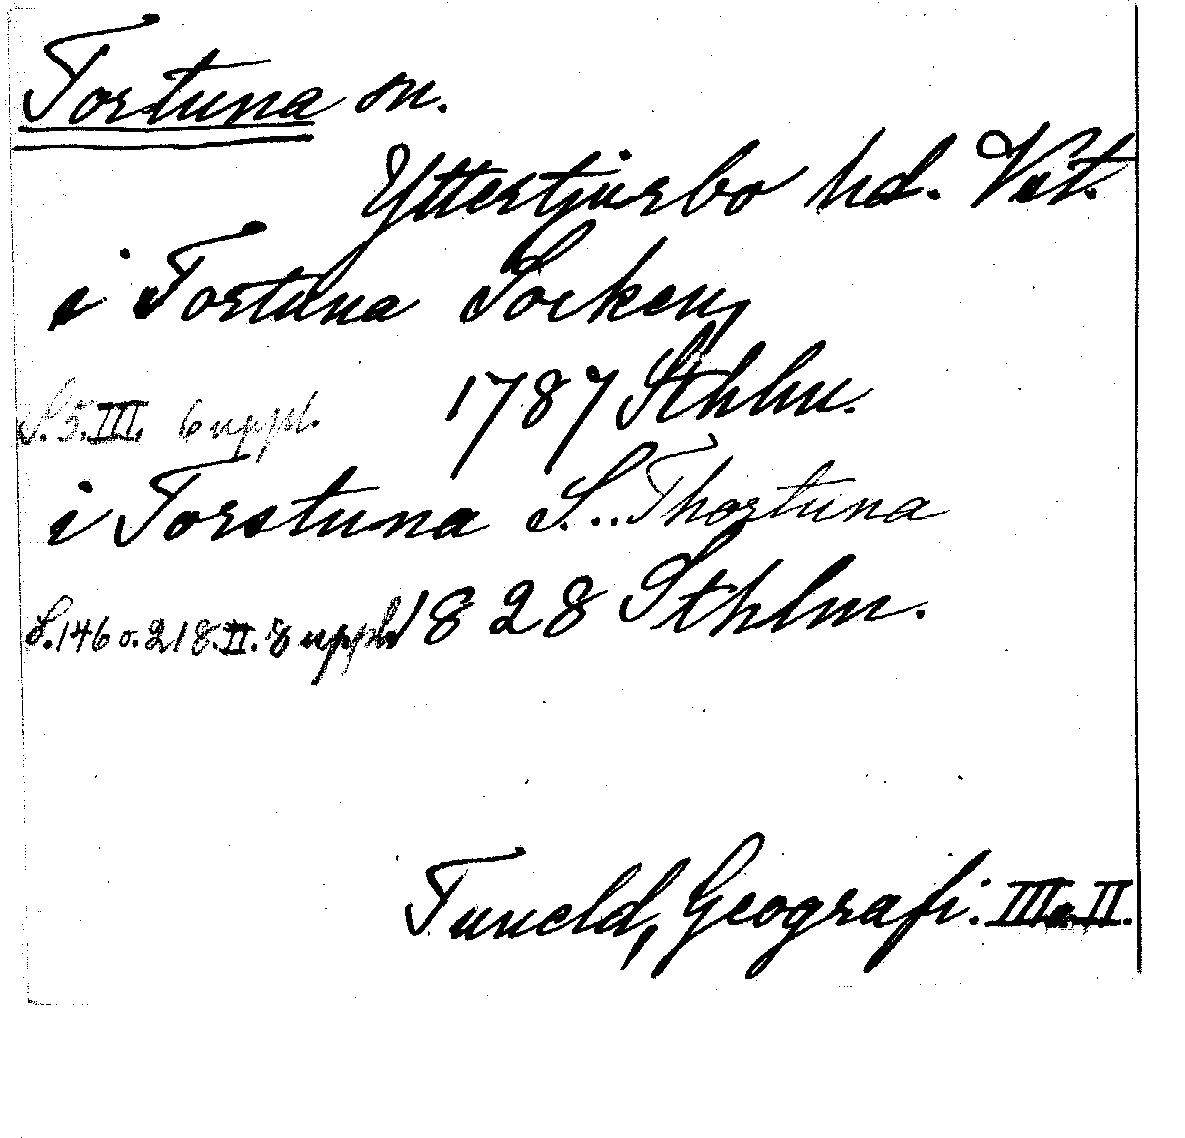 Tortuna sn.
Yttertjurbo hd. Vstm.
i Tortuna Socken,
1787 Sthlm.
S. 5. III. 6 uppl.
i Torstuna S... Thortuna
1828 Sthlm.
S. 146 o. 218. II. 8 uppl.
Tuneld, Geografi. III o. II.